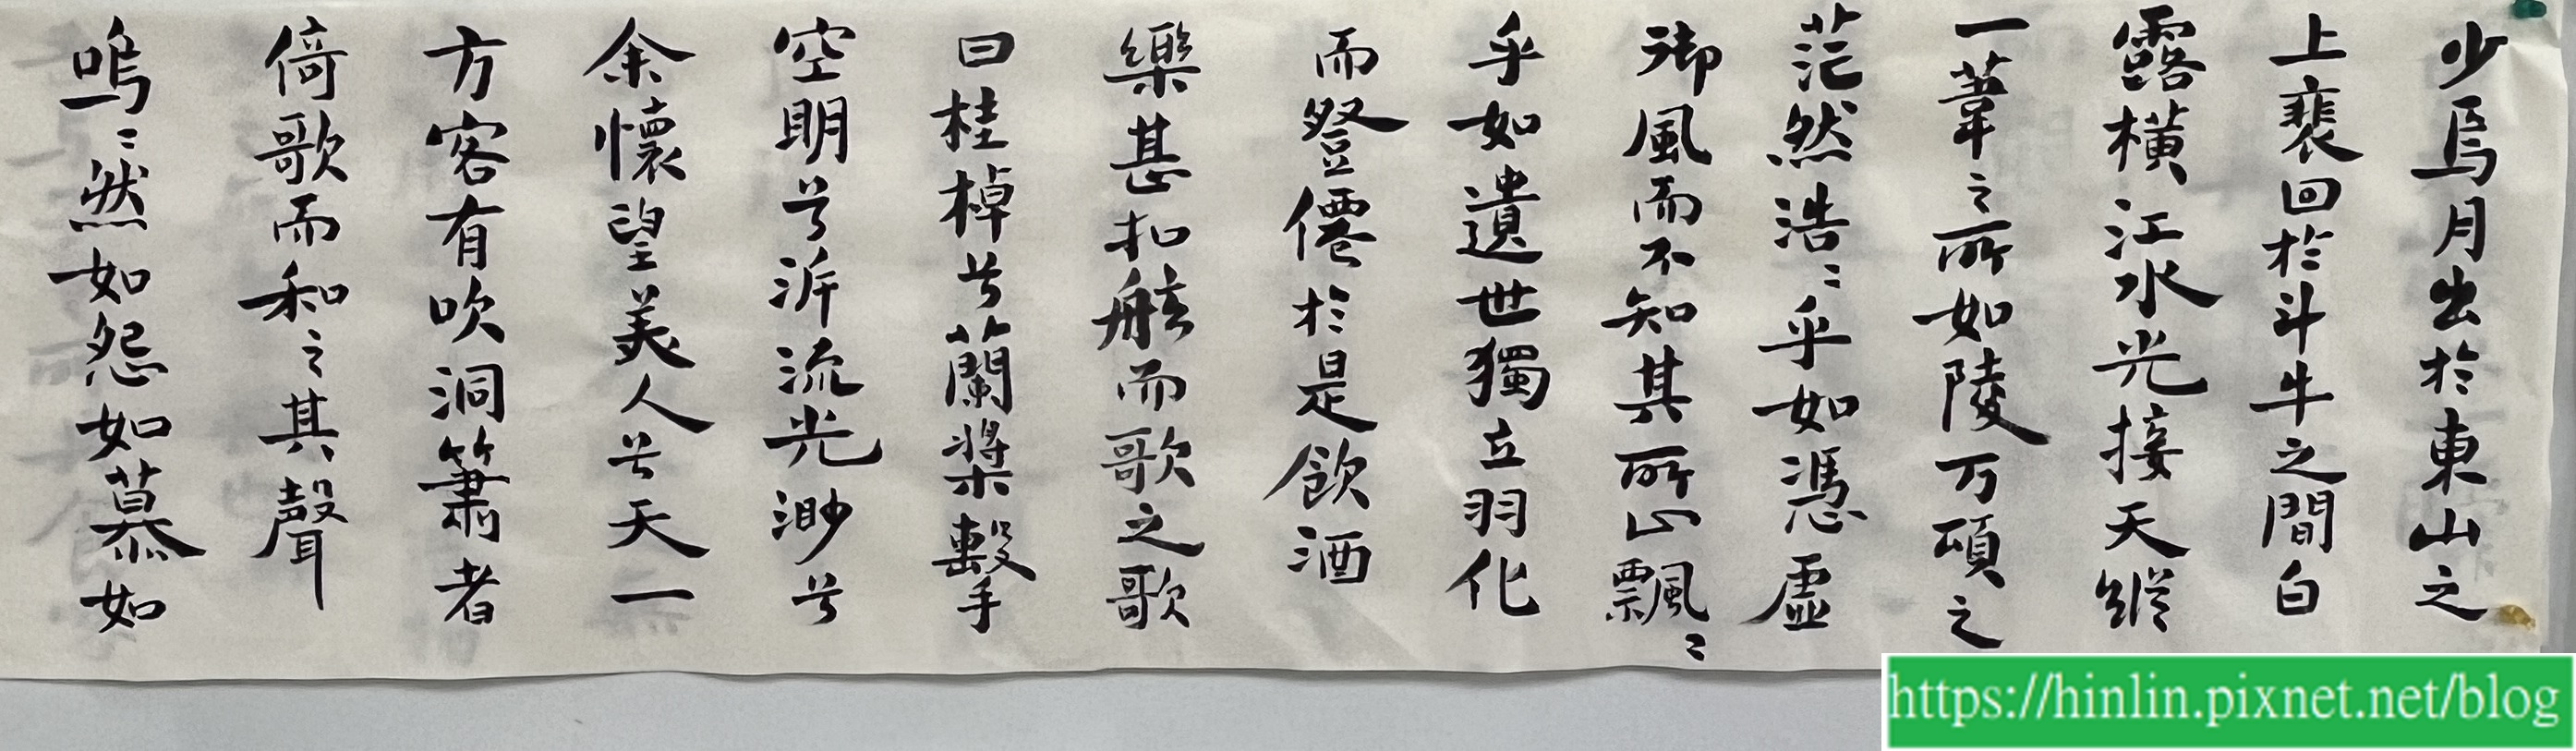 少焉月出於東山之
上裴回於斗牛之間白
露橫江水光接天縱
一葦之所如陵万頃之
茫然浩〻乎如馮虛
御風而不知其所止飄〻
乎如遺世獨立羽化
而登僊於是飲酒
樂甚扣舷而歌之歌
曰桂棹兮蘭槳擊手
空明兮泝流光渺兮
余懷望美人兮天一
方客有吹洞簫者
倚歌而和之其聲
嗚〻然如怨如慕如
https://hinlin.pixnet.net/blog